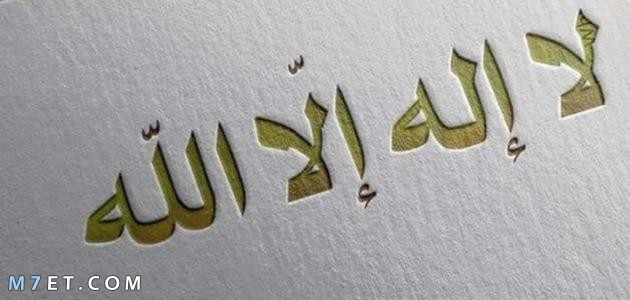 لا إله إلّا اللّه
M7ET.COM